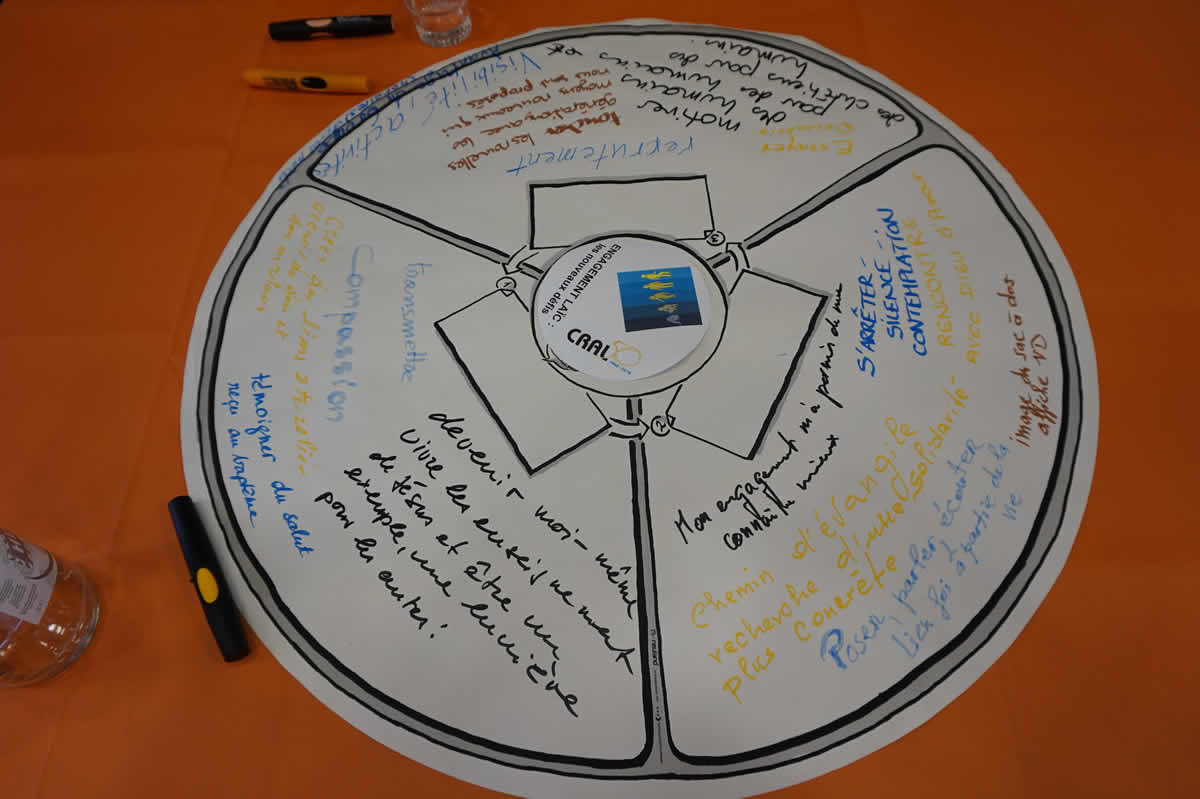 CAAL
ENGAGEMENT LAÏC
les nouveaux défis :
1
transmettre
Compassion
Créer des liens
témoigner du salut
reçu au baptême
devenir moi-même
vivre les enseignement
de Jésus et être un
exemple, une lumière
pour les autres!
2
Mon engagement m'a permis de me
connaître mieux
S'ARRÊTER -
SILENCE -
CONTEMPLATION
RENCONTRE
AVEC DIEU DANS
Chemin d'évangile
recherche d'une
solidarité
plus concrète
Poser, parler, écouter
Lien foi à partir de la
vie
image du sac à dos
affiche VD
3
recrutement
toucher les nouvelles
générations avec les
moyens nouveaux qui
nous sont proposés
Visibilité / activités
motiver
des humains
par des humains
des chrétiens par des
humains.
Essayer
neuland